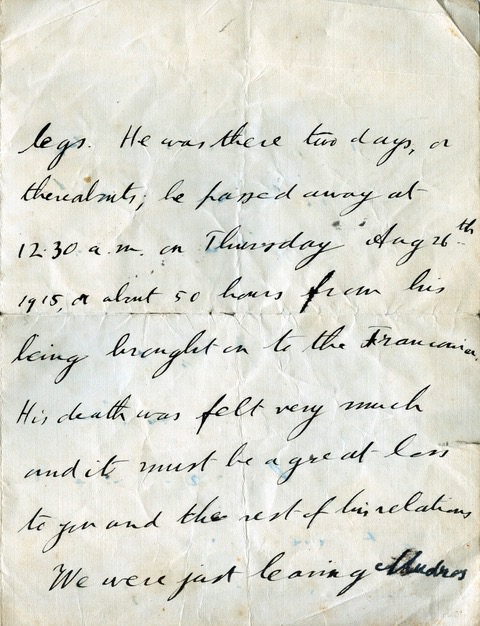 legs. He was there two days, or
thereabouts; he passed away at
12.30 a.m. on Thursday Aug 26th
1915, or about 50 hours from his
being brought on to the Franconia.
His death was felt very much
and it must be a great loss
to you and the rest of his relations
We were just leaving Mudros